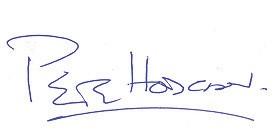 Pete Hodgson.